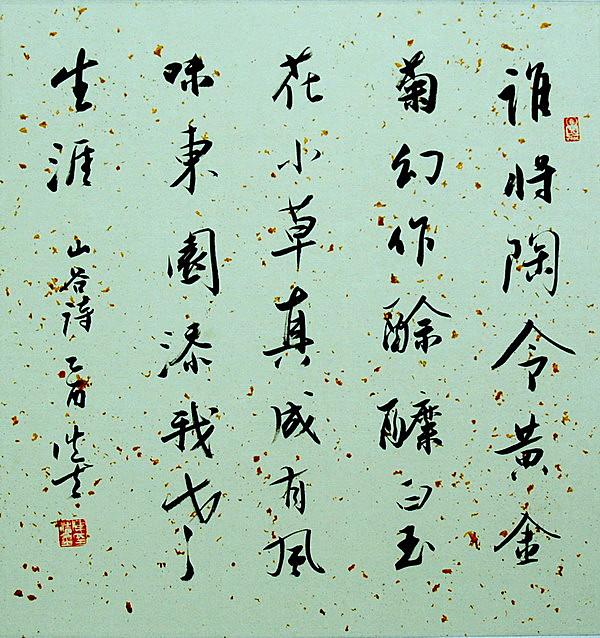 誰將陶令黃金
菊幻作酴醾白玉
花小草真成有風
味東園添我老
生涯 山谷詩 乙酉